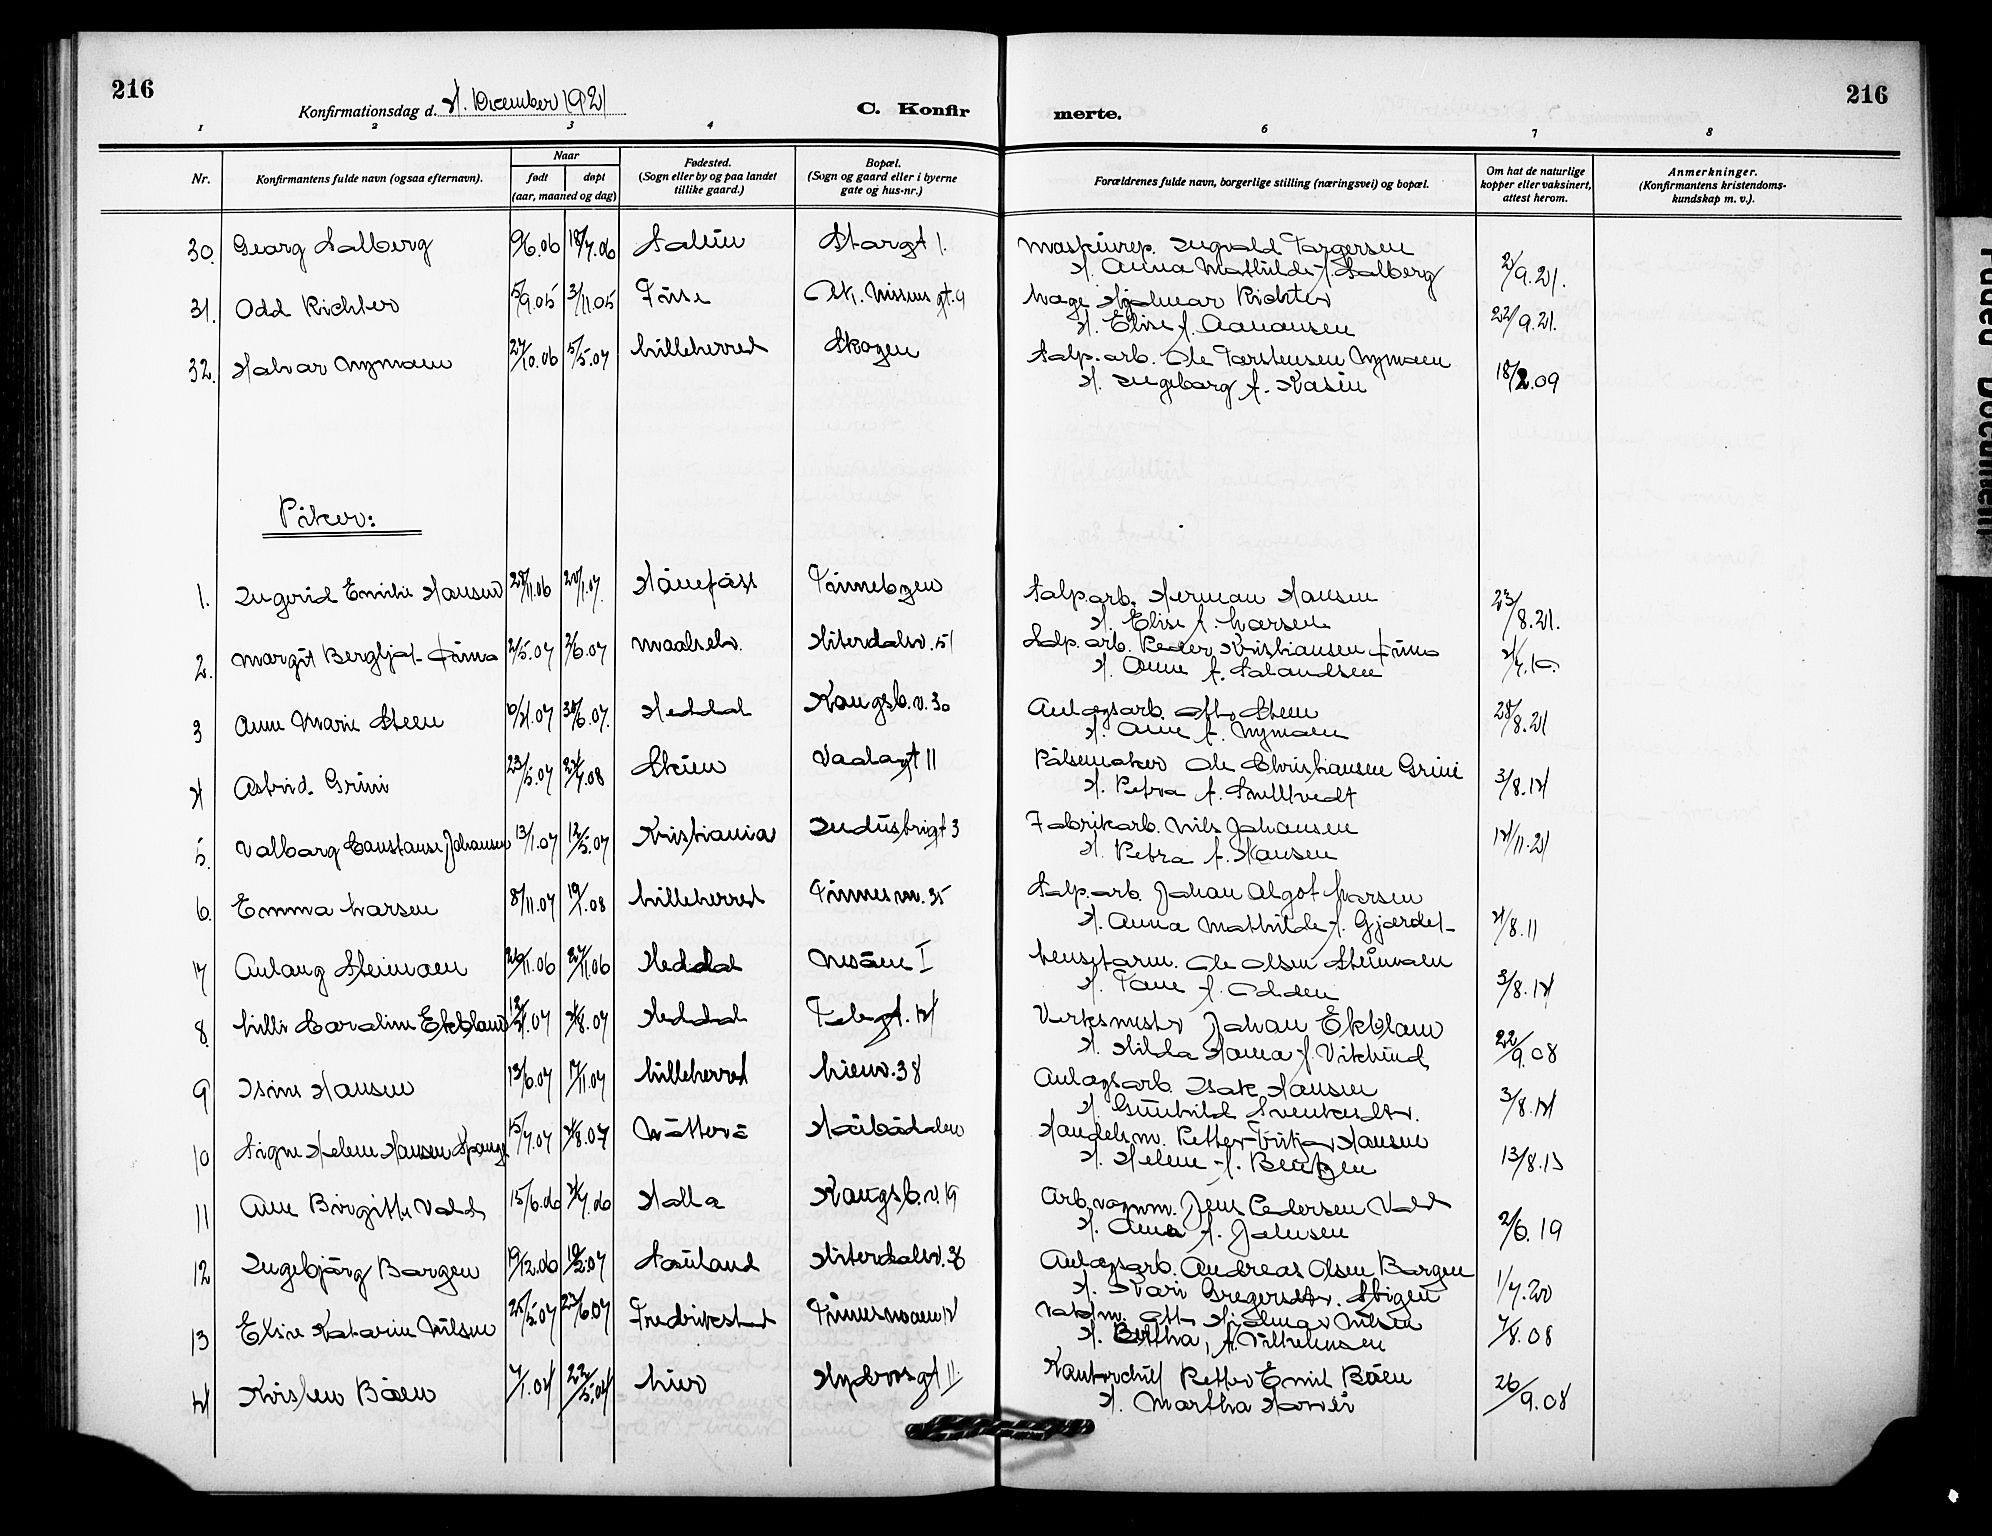 216
Konfirmationsdag d. 4. December 1921
C. Konfir
merte.
216
1 2 3 4 6 7 8
Nr.
Konfirmantens fulde navn (ogsaa efternavn).
Naar
født
døpt
(aar, maaned og dag)
Fødested.
(Sogn eller by og paa landet
tillike gaard.)
Bopæl.
(Sogn og gaard eller i byerne
gate og hus-nr.)
Forældrenes fulde navn, borgerlige stilling (næringsvei) og bopæl.
Om hat de naturlige
kopper eller vaksinert,
attest herom.
Anmerkninger.
(Konfirmantens kristendoms-
kundskap m. v.).
30. Georg Salberg 9/6.06 18/7.06 Solum Storgt 1. Maskinrep. Ingvald Torgersen
H. Anna Mathilde f. Salberg 2/9.21.
31. Odd Richter 5/9.05 3/11.05 Nissens gt. 9 Hjalmar Richter
H. Elise f. Aamonsen 22/9.21.
32. Halvar Nymoen 27/10.06 5/5.07 Lilleherred Skogen Salp.arb. Ole Torstensen Nymoen
H. Ingeborg f. Kasin 18/2.09
Piker:
1. Ingerid Emilie Hansen 28/11.06 20/1.07 Hønefoss Tinnebyen Salp.arb. Herman Hansen
H. Elise f. Larsen 23/8.21.
2. Margit Bergljot 2/5.07 2/6.07 Maalselv. Hiterdalsv. 51 Salp.arb. Peder Kristiansen
H. Anne f. Salandsen
3 Anne Marie Steen 6/4.07 30/6.07. Heddal Kongsb.v. 30 Anlægsarb. Otto Steen
H. Anne f. Nymoen 28/8.21
4 Astrid Grini 23/5.07 Skien Vaalagt 11 Pølsemaker Ole Christiansen Grini
H. Petra f. 3/8.14
5. Valborg Constanse Johansen 13/1.07 12/5.07 Kristiania Industrigt 3 Fabrikarb. Nils Johansen
H. Petra f. Hansen 14/11.21
6. Emma Larsen 8/11.07 19/1.08 Lilleherred Tinnesm. 35 Salp.arb. Johan Algot Larsen
H. Anna Mathilde f. Gjærdet 4/8.11
7 Aulaug Steinmoen 26/11.06 Heddal Mosen I Ole Olsen Steinmoen
H. Tone f. Odden 3/8.14
8. Lilli Caroline Ekblom 4/8.07 Heddal Telegt. 14 Verksmester Johan Ekblom
H. Hilda Hanna f. Viklund 22/9.08
9 Isine Hansen 13/6.07 17/11.07 Lilleherred Lienv. 38 Anlægsarb. Isak Hansen
H. Gunhild 3/8.14
10 Signe Helene Hansen 15/7.07 4/8.07 Notterø Handelsm. Petter Hansen
H. Helene f. Bentzen 13/8.15
11 Anne Birgitte Vold 15/6.06 Holla Kongsb.v. 19 Jens Pedersen Vold
H. Anna f. Johnsen 2/6.19
12 Ingebjørg Borgen 19/12.06 Sauland Hiterdalsv. 36 Anlægsarb. Andreas Olsen Borgen
H. Kari Gregersdtr. Stigen 1/7.20
13 Elsie Katarine Nilsen 25/5.07 23/6.07 Fredrikstad Tinnesmoen 12 Otto Hjalmar Nilsen
H. Bertha, f. Vilhelmsen 7/8.08
14 Kirsten Bøen 7/1.04 22/5.04 Lier Hydrosgt 11 Kontorchef Petter Emil Bøen
H. Martha 26/9.08
Faded Document